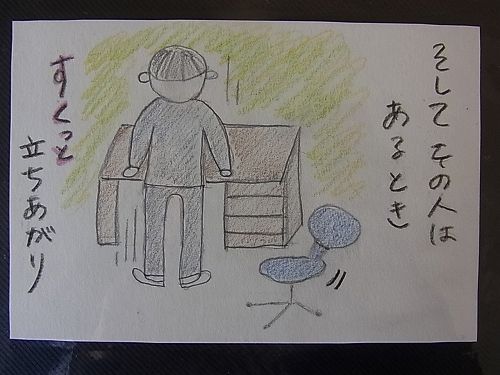 そしてその人は
あるとき
すくっと
立ちあがり